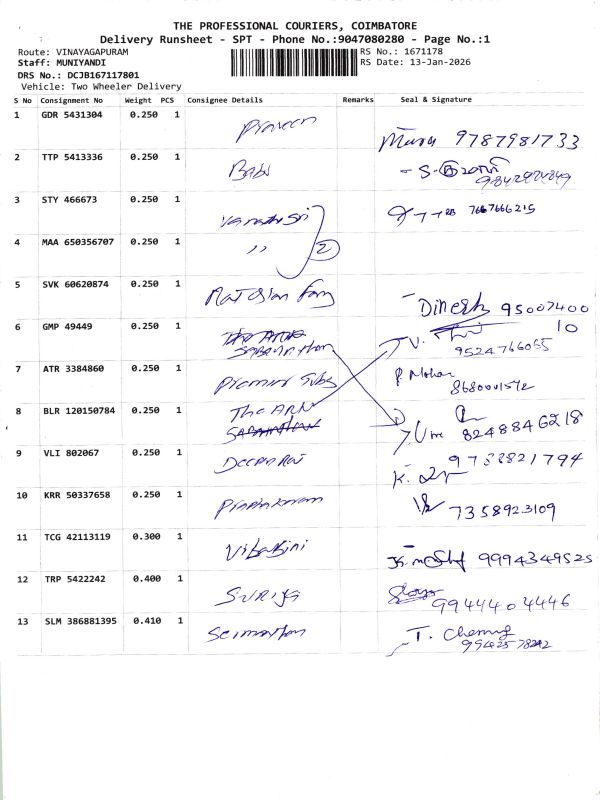 THE PROFESSIONAL COURIERS, COIMBATORE
Delivery Runsheet - SPT - Phone No.:9047080280 - Page No.:1
Route: VINAYAGAPURAM
RS No.: 1671178
Staff: MUNIYANDI
RS Date: 13-Jan-2026
DRS No.: DCJB167117801
Vehicle: Two Wheeler Delivery
S No Consignment No Weight PCS Consignee Details Remarks Seal & Signature
1 GDR 5431304 0.250 1 Praveen
9787981733
2 TTP 5413336 0.250 1 Babu
3 STY 466673 0.250 1
7667666215
4 MAA 650356707 0.250 1 ,, 2
5 SVK 60620874 0.250 1
Dinesh 95007400
10
6 GMP 49449 0.250 1
9524766055
7 ATR 3384860 0.250 1
P Mohan
8680001572
8 BLR 120150784 0.250 1 The ARN
8248846218
9 VLI 802067 0.250 1 Deepa Raj
9738821794
10 KRR 50337658 0.250 1 Prabhakaran
7358923109
11 TCG 42113119 0.300 1 Vibashini
9994349525
12 TRP 5422242 0.400 1 Suriya
9944404446
13 SLM 386881395 0.410 1
T.
9942578242